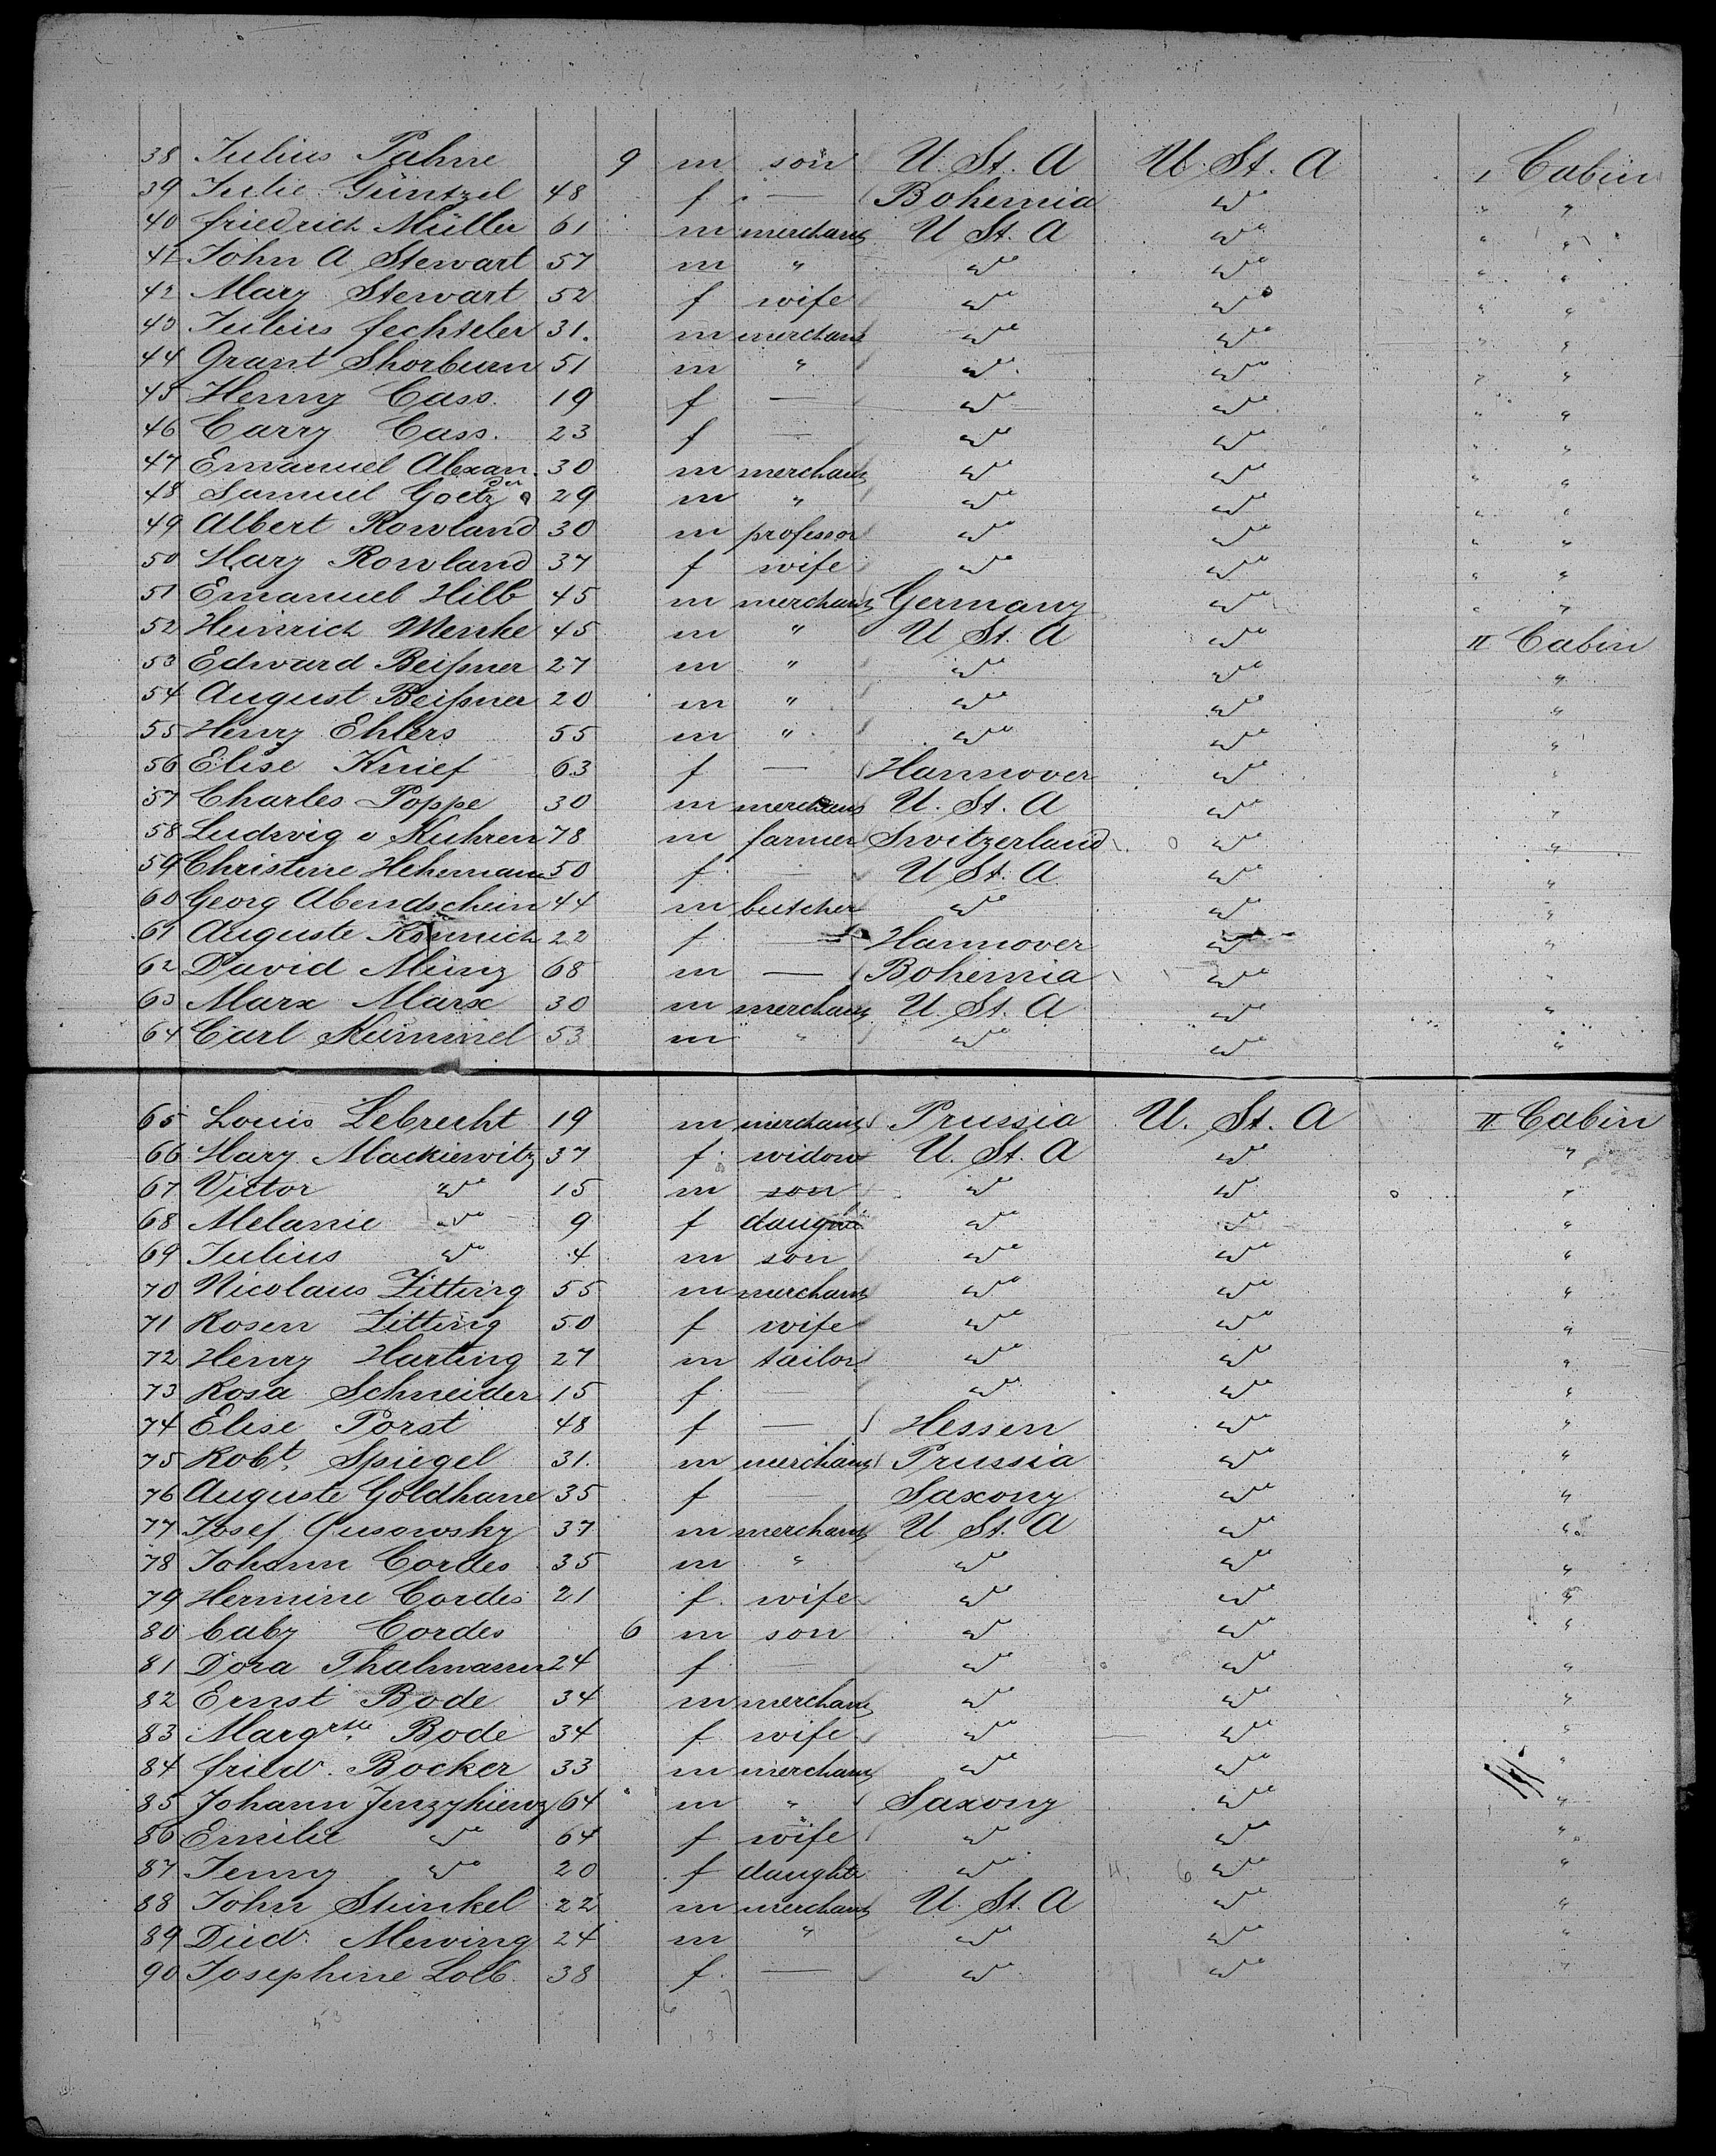 38 Julius Pahne 9 m son U. St. A U. St. A I Cabin
39 Julie Güntzel 48 f — Bohemia do " "
40 friedrich Müller 61 m merchant U St. A do " "
41 John A Stewart 57 m " do do " "
42 Mary Stewart 52 f wife do do " "
43 Julius fechteler 31. m merchant do do " "
44 Grant Thorburn 51 m " do do " "
45 Henry Cass. 19 f — do do " "
46 Carry Cass. 23 f — do do " "
47 Emanuel Alexan. 30 m merchant do do " "
der
48 Samuel Goetz 29 m " do do " "
49 Albert Rowland 30 m professor do do " "
50 Mary Rowland 37 f wife do do " "
51 Emanuel Hilb 45 m merchant Germany do " "
52 Heinrich Menke 45 m " U St. A do II Cabin
53 Edward Beißner 27 m " do do "
54 August Beißner 20 m " do do "
55 Henry Ehlers 55 m " do do "
56 Elise Knief 63 f — Hannover do "
57 Charles Poppe 30 m merchant U. St. A do "
58 Ludwig v Kuhren 78 m farmer Switzerland do "
59 Christine Hehemann 50 f — U St. A do "
60 Georg Abendschein 44 m butcher do do "
61 Auguste Könnich 22 f — Hannover do "
62 David Münz 68 m — Bohemia do "
63 Marx Marx 30 m merchant U. St. A do "
64 Carl Kümmel 53 m " do do "
65 Louis Lebrecht 19 m merchant Prussia U. St. A II Cabin
66 Mary Mackiewitz 37 f widow U. St. A do "
67 Victor do 15 m son do do "
68 Melanie do 9 f daughter do do "
69 Julius do 4 m son do do "
70 Nicolaus Zitting 55 m merchant do do "
71 Rosen Zitting 50 f wife do do "
72 Henry Harting 27 m tailor do do "
73 Rosa Schneider 15 f — do do "
74 Elise Porst 48 f — Hessen do "
75 Robt. Spiegel 31. m merchant Prussia do "
76 Auguste Goldhane 35 f — Saxony do "
77 Josef Gusowsky 37 m merchant U. St. A do "
78 Johann Cordes 35 m " do do "
79 Hermine Cordes 21 f. wife do do "
80 baby Cordes 6 m son do do "
81 Dora Thalmann 24 f — do do "
82 Ernst Bode 34 m merchant do do "
83 Margrethe Bode 34 f wife do do "
84 friedr. Bocker 33 m merchant do do "
85 Johann 64 m " Saxony do "
86 Emilie do 64 f wife do do "
87 Jenny do 20 f daughte do do "
88 John Stünkel 22 m merchant U. St. A do "
89 Diedr. Mewing 24 m " do do "
90 Josephine Loeb. 38 f. — do do "